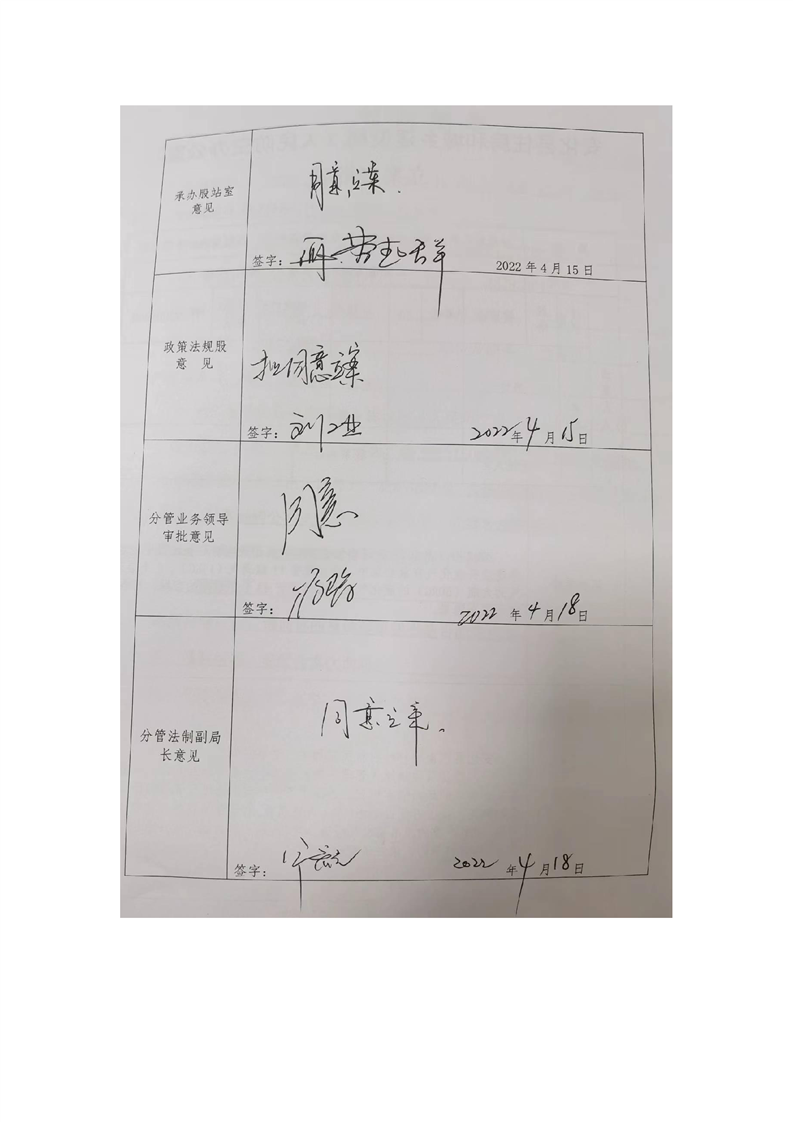 承办股站室
意见
同意立案.
签字:
2022年4月15日
政策法规股
意 见
拟同意立案
签字: 刘
2022年4月15日
分管业务领导
审批意见
同意
签字:
2022年4月18日
分管法制副局
长意见
同意立案。
签字:
2022年4月18日